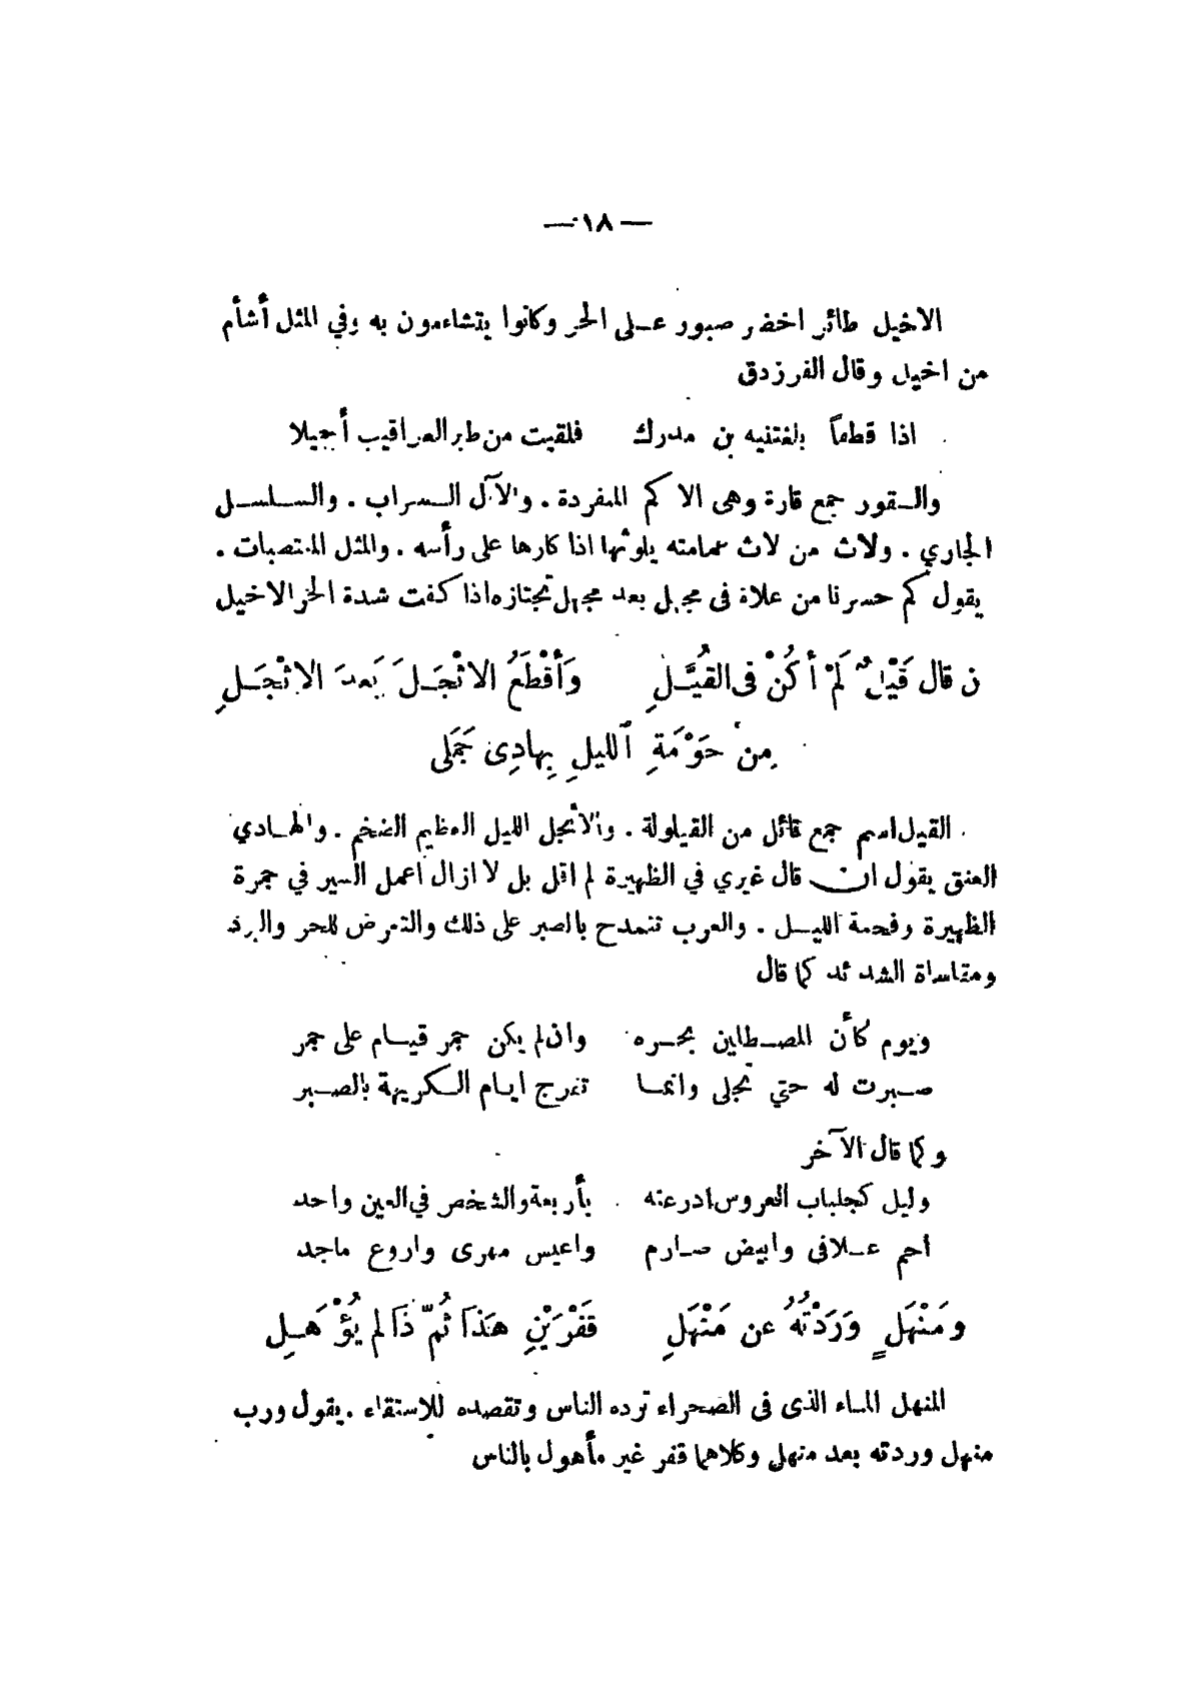 — ١٨ —
الاخيل طائر اخضر صبور على الحر وكانوا يتشاءمون به وفي المثل أشأم
من اخيل وقال الفرزدق
اذا قطعاً بلغتنيه بن مدرك فلقيت من طير العراقيب أخيلا
والقور جمع قارة وهى الاكم المنفردة . والآل السراب . والسلسل
الجاري . ولاث من لاث عمامته يلوثها اذا كارها على رأسه . والمثل المنتصبات .
يقول كم حسرنا من علاة فى مجهل بعد مجهل تجتازه اذا كفت شدة الحر الاخيل
ن قال قَيْلٌ لَمْ أكُنْ فى القُيَّلِ وَأقْطَعُ الاثْجَلَ بَعدَ الاثْجَلِ
مِن حَوْمَةِ الليلِ بِهادِى جَمَلى
القيل اسم جمع قائل من القيلولة . والأثجل الليل العظيم الضخم . والهادي
العنق يقول ان قال غيري في الظهيرة لم اقل بل لا ازال اعمل السير في جمرة
الظهيرة وفحمة الليل . والعرب تتمدح بالصبر على ذلك والتعرض للحر والبرد
ومقاساة الشدئد كما قال
ويوم كأن المصطلين بحره وان لم يكن جمر قيام على جمر
صبرت له حتي تجلى وانما تفرج ايام الكريهة بالصبر
وكما قال الآخر
وليل كجلباب العروس ادرعته بأربعة والشخص في العين واحد
احم علافى وابيض صارم واعيس مهرى واروع ماجد
ومَنْهَلٍ وَرَدْتُهُ عن مَنْهَلِ قَفْرَيْنِ هَذَا ثُمّ ذَا لم يُؤْهَلِ
المنهل الماء الذى فى الصحراء ترده الناس وتقصده للاستقاء . يقول ورب
منهل وردته بعد منهل وكلاهما قفر غير مأهول بالناس